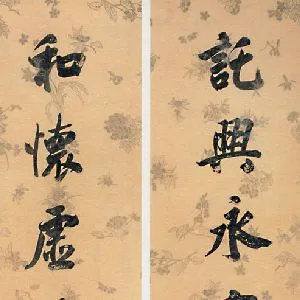 託興永
和懷虛